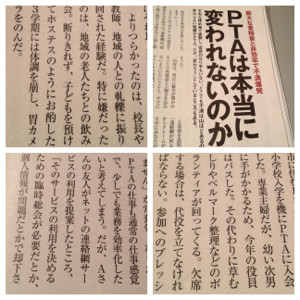 よりつらかったのは、校長や
教師、地域の人との軋轢に振り
回された経験だ。特に嫌だった
のは、地域の老人たちとの飲み
会。断りきれず、子どもを預け
てホステスのようにお酌した
3学期には体調を崩し、胃カメ
ラをのんだ。
膨大な業務量と非効率で不満爆発
PTAは本当に
変われないのか
PTAの仕事も通常の仕事感覚
で、少しでも業務を効率化した
いと考えてしまう。だが、Aさ
んの友人がネットの連絡網サー
ビスの利用を提案したところ、
「そのサービスの利用を決める
ための臨時総会が必要だとか、
個人情報が問題だとかで却下さ
小学校入学を機にPTAに入会
した。専業主婦だが、幼い次男
に手がかかるため、今年の役員
はパスした。その代わりに草む
しりやベルマーク整理などのボ
ランティアが回ってくる。欠席
する場合は、代役を立てなけれ
ばならない。参加へのプレッシ